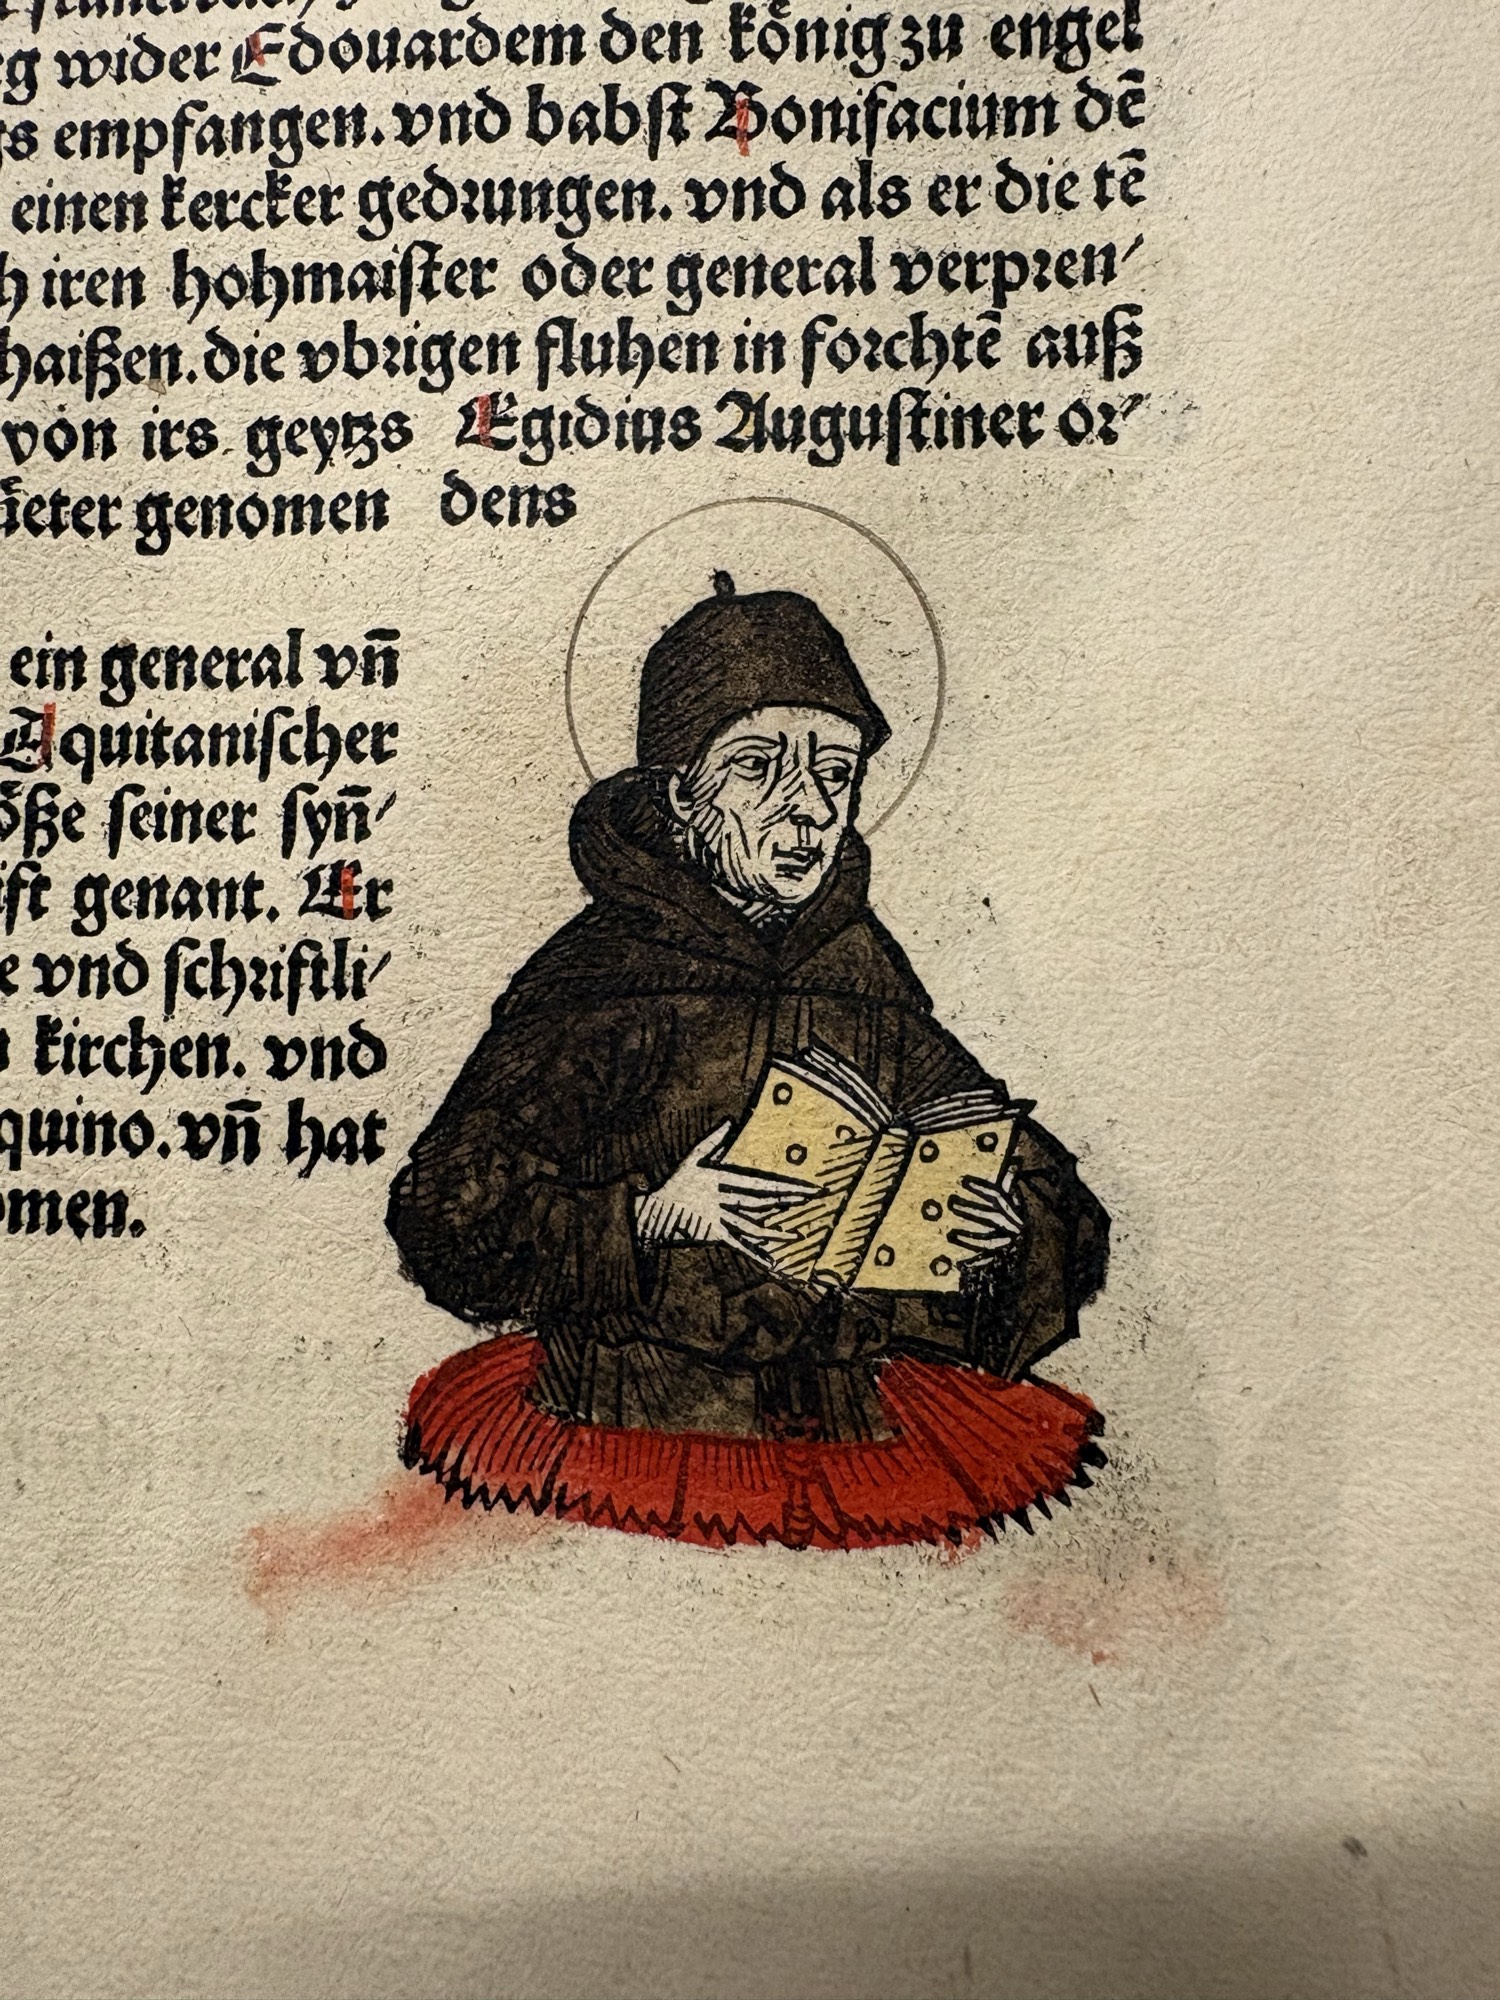 wider Edouardem den könig zu engel
empfangen. vnd babst Bonifacium dē
einen kercker gedrungen. vnd als er die tē
iren hohmaister oder general verpren⸗
haißen. die vbrigen fluhen in forchtē auß
von irs geytzs
genomen
Egidius Augustiner or⸗
dens
ein general vn̄
Aquitanischer
seiner syn̄⸗
genant. Er
vnd schriftli⸗
kirchen. vnd
quino. vn̄ hat
omen.